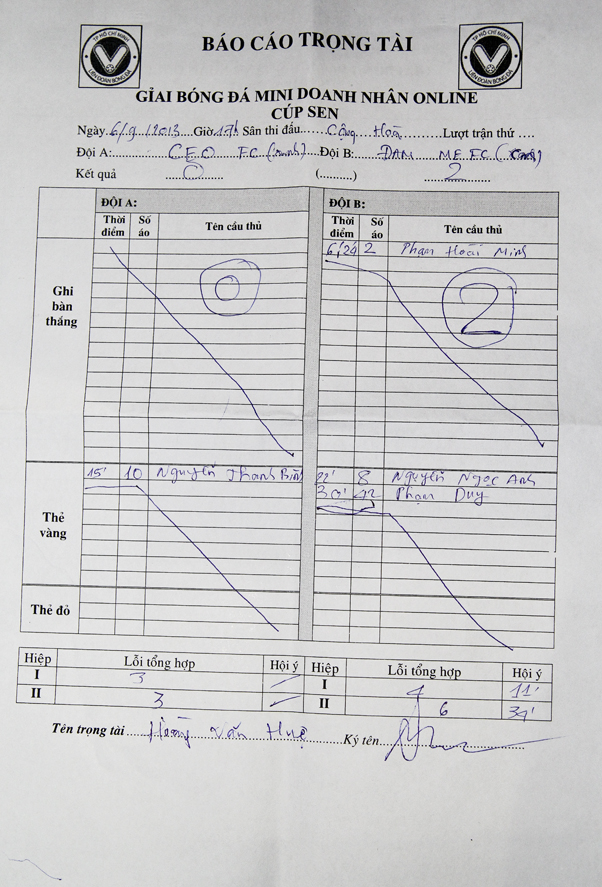 TP HỒ CHÍ MINH
LIÊN ĐOÀN BÓNG ĐÁ
BÁO CÁO TRỌNG TÀI
TP HỒ CHÍ MINH
LIÊN ĐOÀN BÓNG ĐÁ
GIẢI BÓNG ĐÁ MINI DOANH NHÂN ONLINE
CÚP SEN
Ngày 6/9/2013 Giờ 17h Sân thi đấu Cộng Hoà Lượt trận thứ ....
Đội A: CEO FC Đội B: ĐAM MÊ FC
Kết quả 0 (..........) 2
ĐỘI A: ĐỘI B:
Thời điểm Số áo Tên cầu thủ Thời điểm Số áo Tên cầu thủ
Ghi bàn thắng
6', 24' 2 Phạm Hoài Minh
0 2
Thẻ vàng
15' 10 Nguyễn Thanh Bình 22' 8 Nguyễn Ngọc Anh
30' 42 Phạm Duy
Thẻ đỏ
Hiệp Lỗi tổng hợp Hội ý Hiệp Lỗi tổng hợp Hội ý
I 3 I 4 11'
II 3 II 6 34'
Tên trọng tài Hoàng Văn Huệ Ký tên